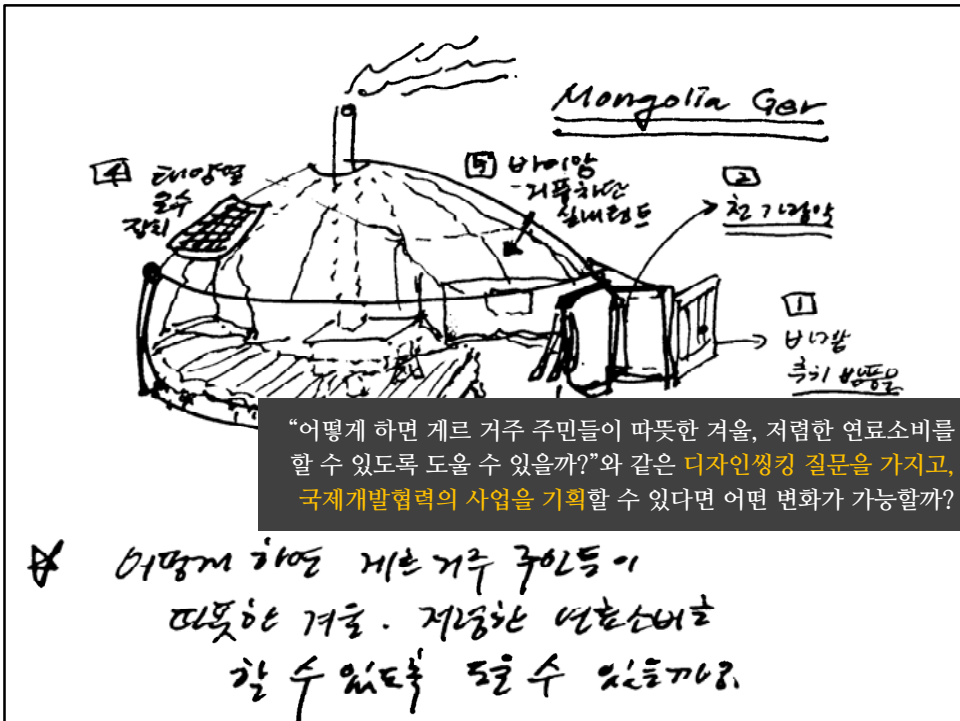 Mongolia Ger
4 태양열
온수
장치
5
외풍차단
실내텐트
2
천 가림막
1
추가 방풍문
“어떻게 하면 게르 거주 주민들이 따뜻한 겨울, 저렴한 연료소비를
할 수 있도록 도울 수 있을까?”와 같은 디자인씽킹 질문을 가지고,
국제개발협력의 사업을 기획할 수 있다면 어떤 변화가 가능할까?
어떻게 하면 게르 거주 주민들이
따뜻한 겨울. 저렴한 연료소비를
할 수 있도록 도울 수 있을까?